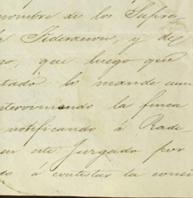 nombre de los Supre
la Federacion, y del
go, que luego que
tado lo mande cum
interviniendo la finca
notificando á Rade
en este Juzgado por
á contestar la